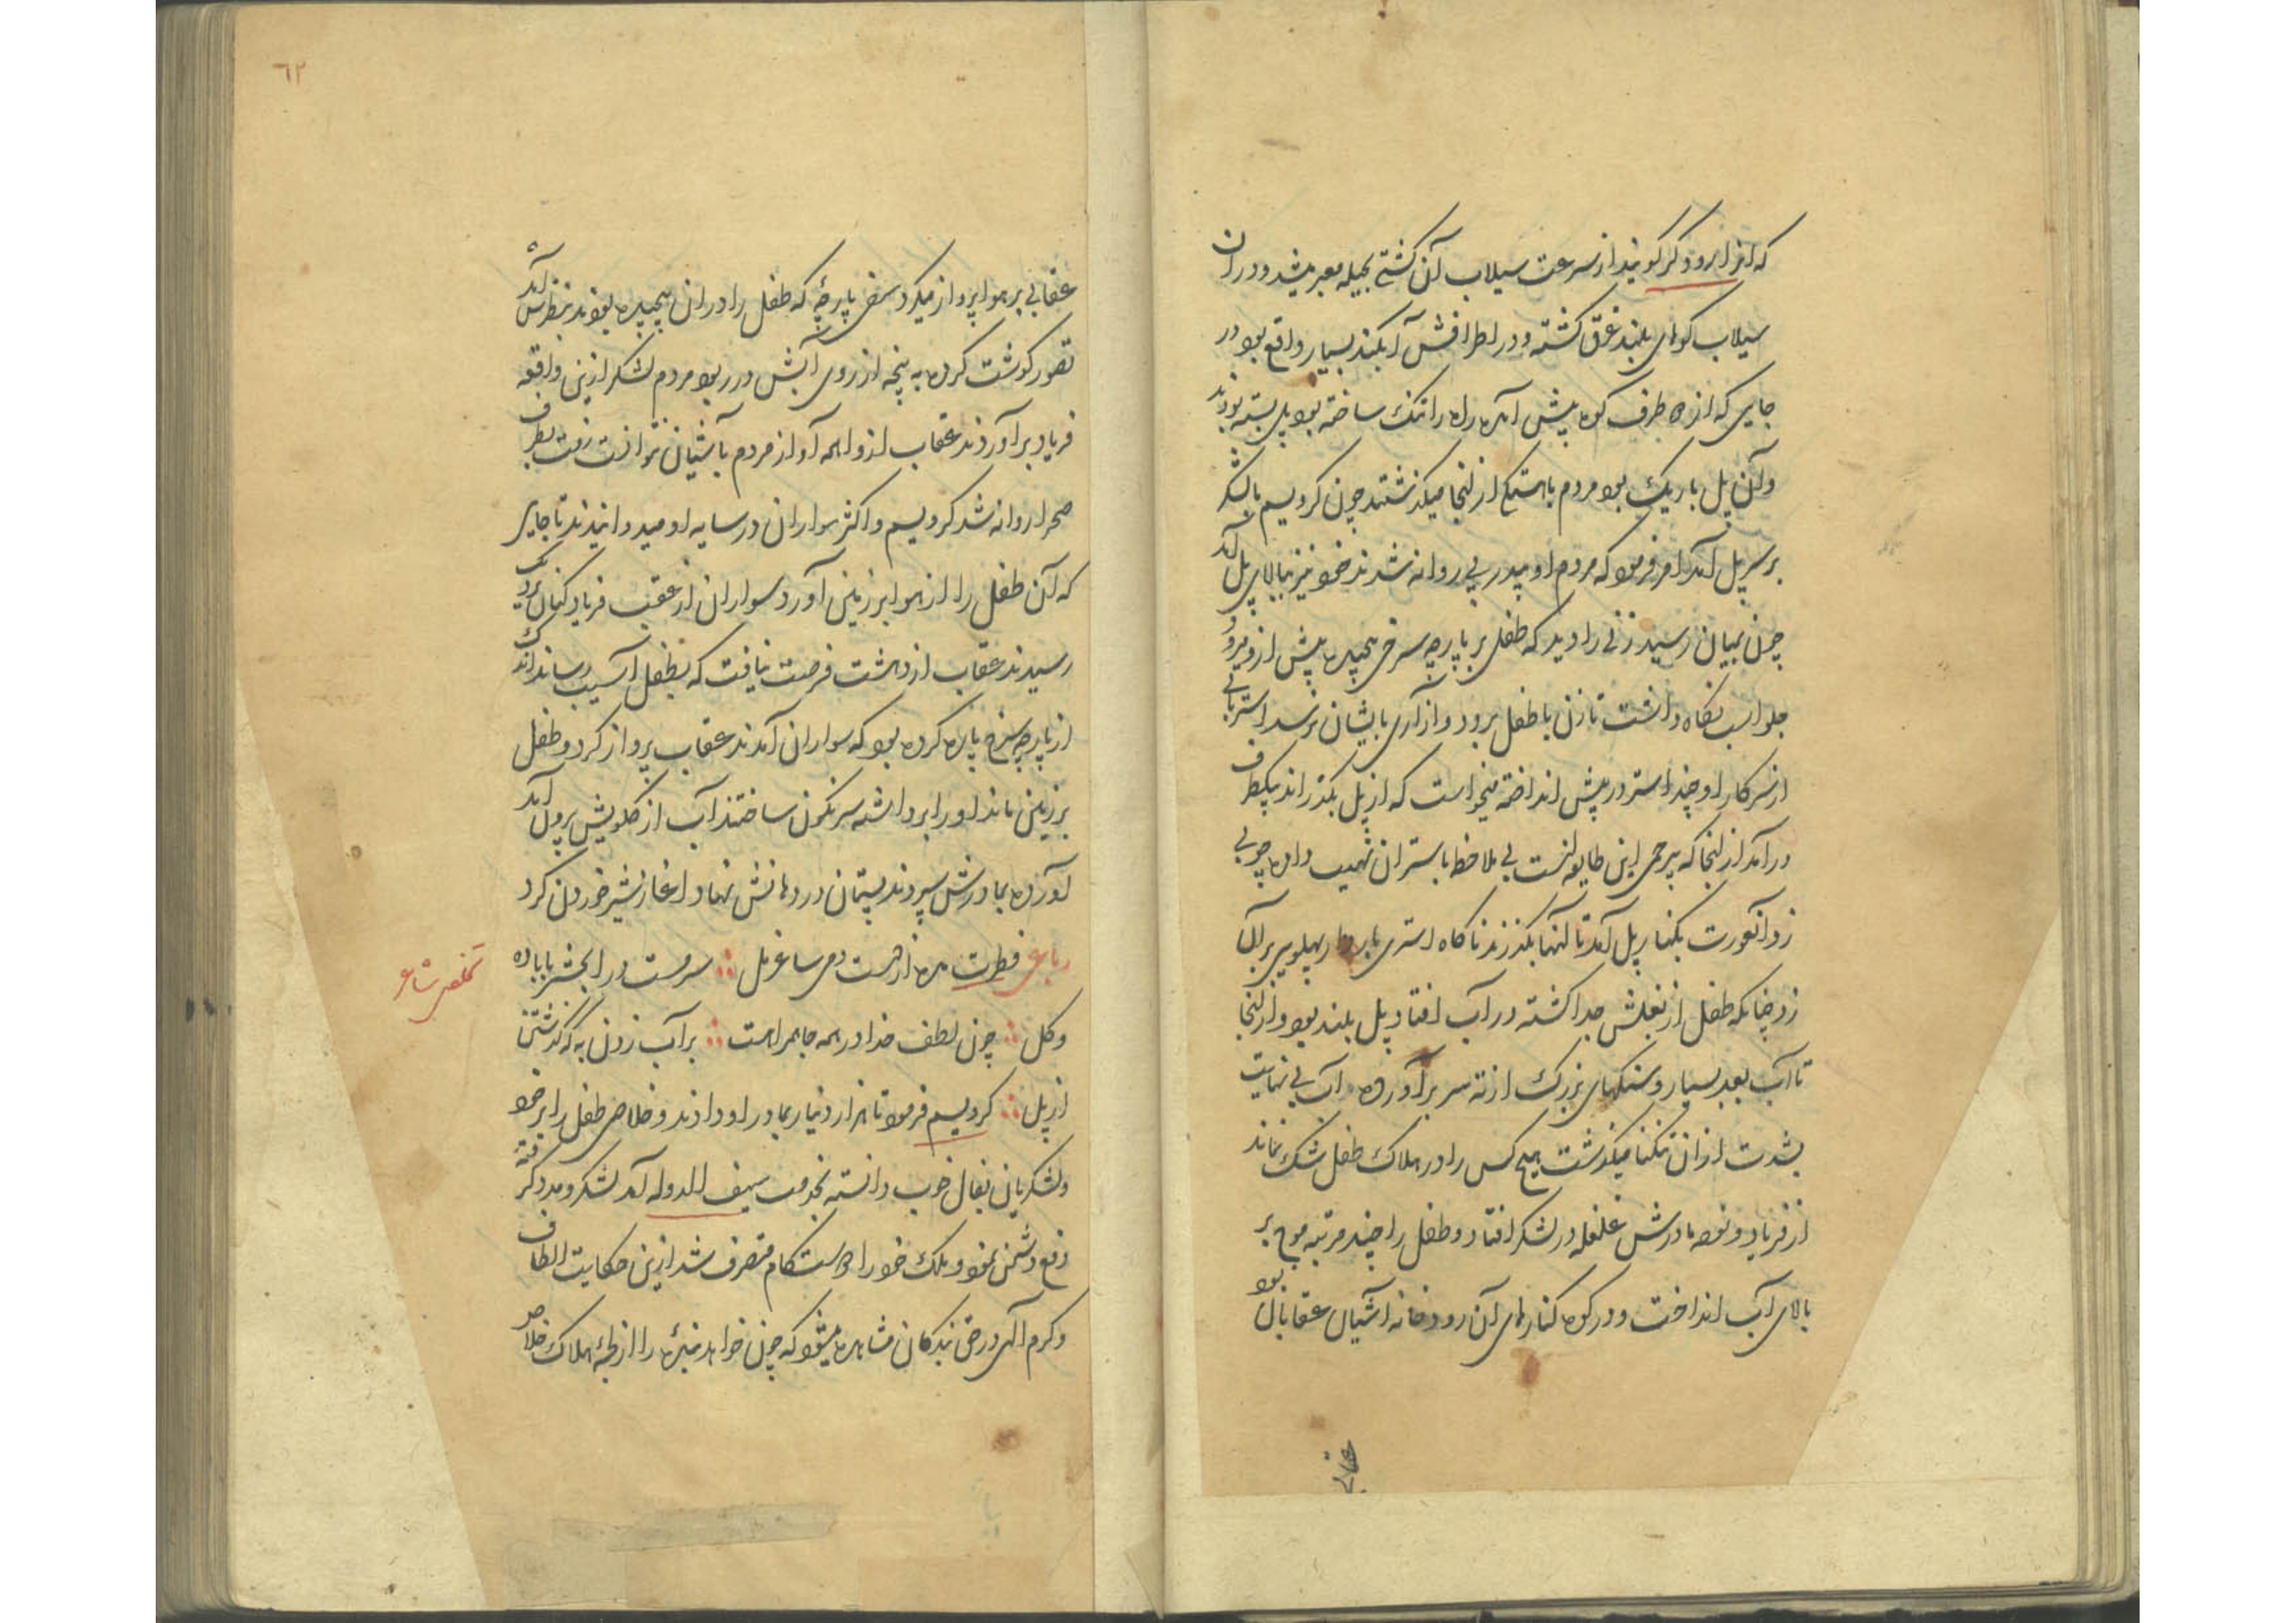 که انرا رود کر گویند از سرعت سیلاب آن کشتی بحیله معبر میشد و دران
سیلاب کوهای بلند غرق گشته و در اطرافش آبکند بسیار واقع بود در
جایی که از دو طرف کوه پیش آمده راه را تنک ساخته بود پل بسته بودند
و آن پل باریک بود مردم باهستگی از انجا میگذشتند چون کردیسم با لشکر
بر سر پل آمد امر فرمود که مردم او پی در پی روانه شدند خود نیز ببالای پل آمد
چون بمیان رسید زنی را دید که طفلی بر پارچه سرخی پیچیده پیش ازو میرود
جلو اسب نگاه داشت تا زن با طفل برود و ازاری بایشان نرسد استربانی
از سرکار او چند استر در پیش انداخته میخواست که از پل بگذراند یکطرف
در آمد از انجا که بیرحمی این طایفه است بی ملاحظه باستران نهیب داده چوبی
زد آنعورت بکنار پل آمد تا آنها بگذرند ناگاه استری باردار پهلویی بر آن
زد چنانکه طفل از بغلش جدا گشته در آب افتاد پل بلند بود و از انجا
تا آب بعد بسیار و سنگهای بزرگ از ته سر برآورده آب بی نهایت
بشدت از ان تنکنا میگذشت هیچ کس را در هلاک طفل شک نماند
از فریاد و نوحه مادرش غلغله در لشکر افتاد و طفل را چند مرتبه موج بر
بالای آب انداخت و در کوه کنارهای آن رودخانه آشیان عقابان بود
عقابی
٦٢
عقابی بر هوا پرواز میکرد سرخی پارچهٔ که طفل را دران پیچیده بودند بنظرش آمد
تصور گوشت کرده به پنجه از روی آبش در ربود مردم لشکر ازین واقعه
فریاد برآوردند عقاب از واهمه آواز مردم بآشیان نتوانست رفت بطرف
صحرا روانه شد کردیسم و اکثر سواران در سایه او میدوانیدند تا جایی
که آن طفل را از هوا بر زمین آورد سواران از عقب فریاد کنان نزدیک
رسیدند عقاب از دهشت فرصت نیافت که بطفل آسیب رساند اندک
از پارچه سرخ پاره کرده بود که سواران آمدند عقاب پرواز کرد و طفل
بر زمین ماند او را برداشته سرنگون ساختند آب از گلویش برون آمد
آورده بمادرش سپردند پستان در دهانش نهاد و آغاز شیر خوردن کرد
رباعی فطرت مده از دست دمی ساغر مل ؞ سرمست درا بحشر با باده
تخلص شاعر
و گل ؞ چون لطف خدا در همه جا همراهست ؞ بر آب زدن به که گذشتن
از پل ؞ کردیسم فرمود تا هزار دینار بمادر او دادند و خلاصی طفل را بر خود
و لشکریان بفال خوب دانسته بخدمت سیف الدوله آمد لشکر و مدد گرفته
دفع دشمن نمود و ملک خود را باستحکام متصرف شد ازین حکایت الطاف
و کرم الهی در حق بندگان مشاهده میشود که چون خواهد بنده را از لجهٔ هلاک خلاص